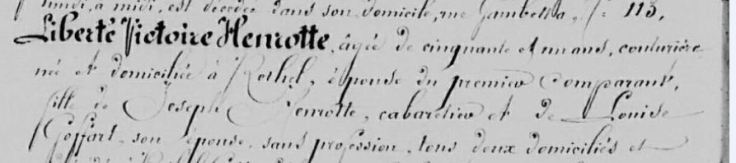 lundi, à midi, est décédée dans son domicile, rue Gambetta, n° 113,
Liberté Victoire Henrotte, âgée de cinquante et un ans, couturière
née et domiciliée à Rethel, épouse du premier Comparant,
fille de Joseph Henrotte, cabaretier et de Louise
Goffart, son épouse, sans profession, tous deux domiciliés et